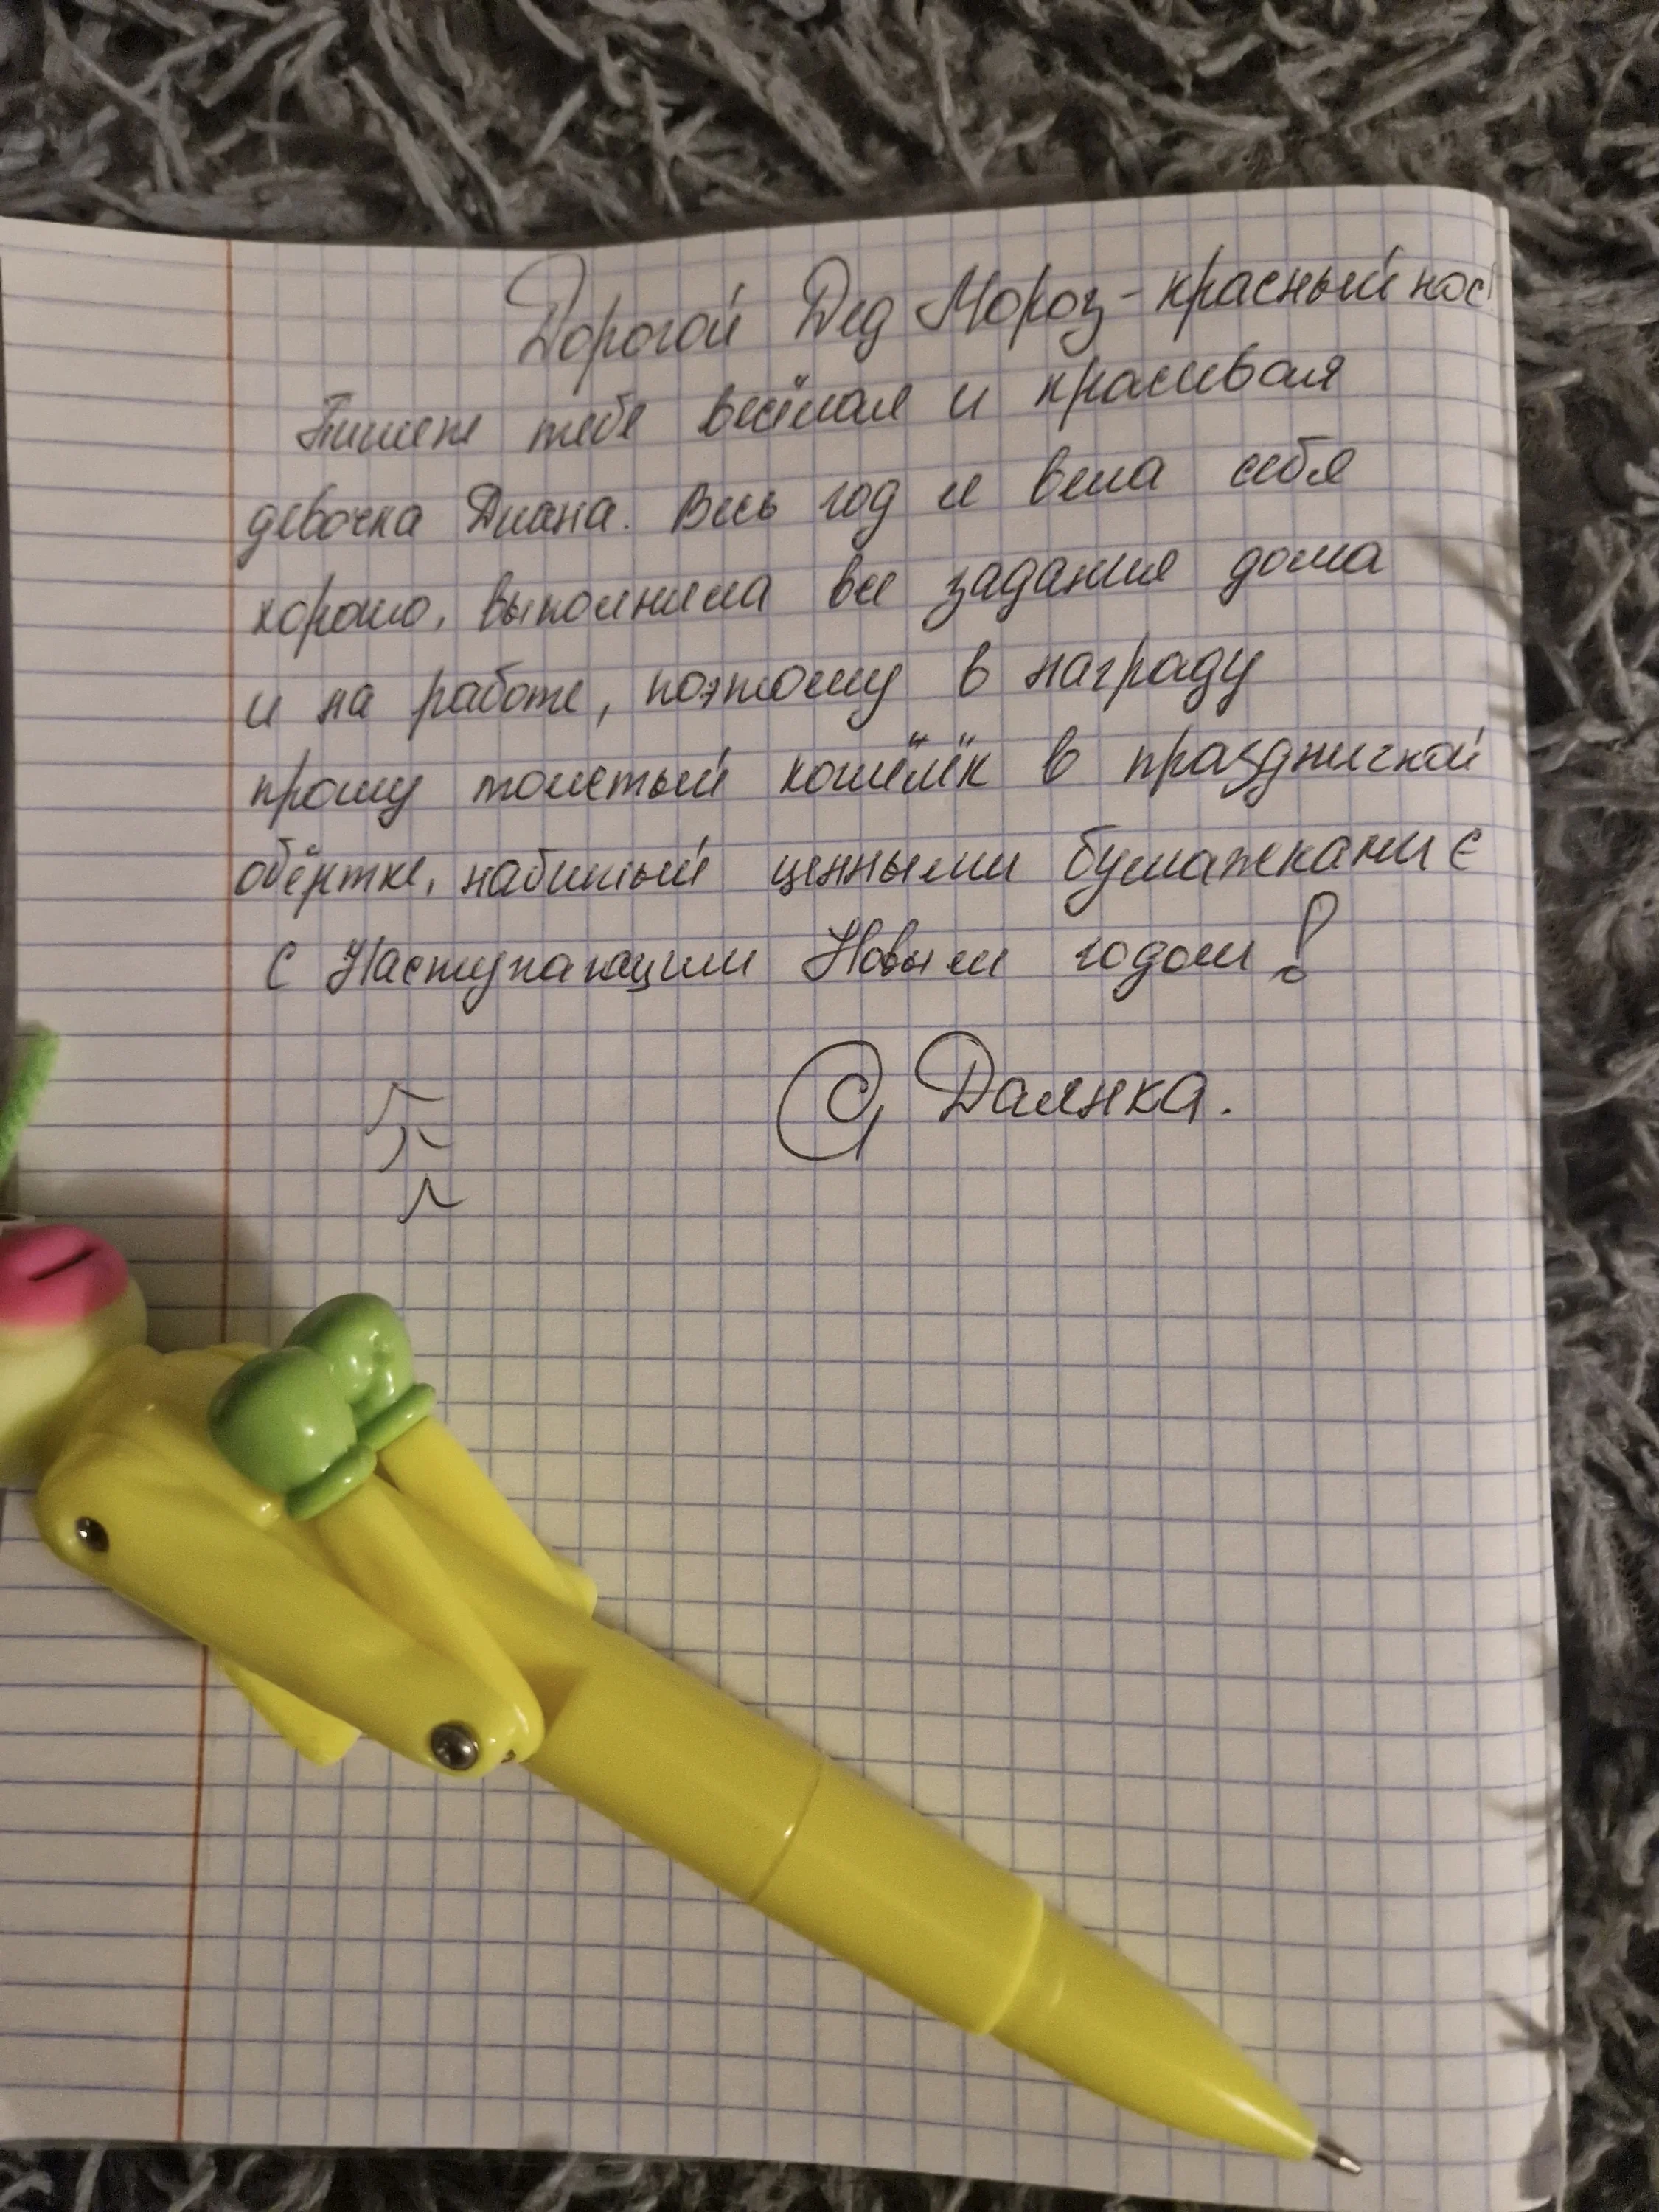 Дорогой Дед Мороз-красный нос!
Пишет тебе весёлая и красивая
девочка Диана. Весь год я вела себя
хорошо, выполнила все задания дома
и на работе, поэтому в награду
прошу толстый кошелёк в праздничной
обёртке, набитый ценными бумажками €
С Наступающим Новым годом!
Даянка.